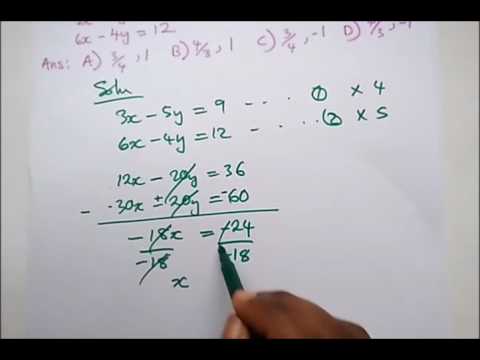 6x - 4y = 12
Ans: A) 3/4, 1 B) 4/3, 1 C) 3/4, -1 D) 4/3, -1
Soln
3x - 5y = 9 - - - . ① × 4
6x - 4y = 12 - - . . . ② × 5
12x - 20y = 36
- -30x ± 20y = -60
-18x = -24
-18 -18
x